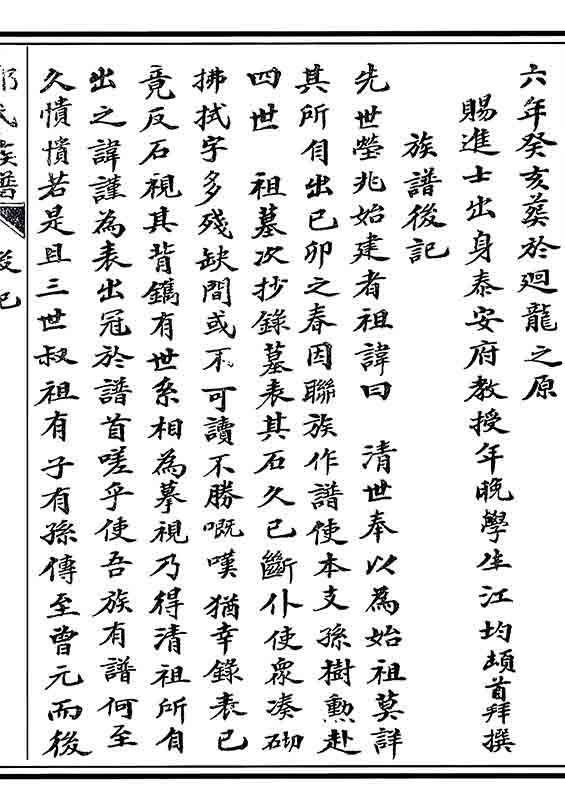 六年癸亥葬於廻龍之原
賜進士出身泰安府教授年晚學生江均頓首拜撰
族譜後記
先世塋兆始建者祖諱曰 清世奉以為始祖莫詳
其所自出己卯之春因聯族作譜使本支孫樹勲赴
四世 祖墓次抄錄墓表其石久已斷仆使衆凑砌
拂拭字多殘缺間或不可讀不勝嘅嘆猶幸錄表已
竟反石視其背鐫有世系相為摹視乃得清祖所自
出之諱謹為表出冠於譜首嗟乎使吾族有譜何至
久憒憒若是且三世叔祖有子有孫傳至曾元而後
氏族譜
後記